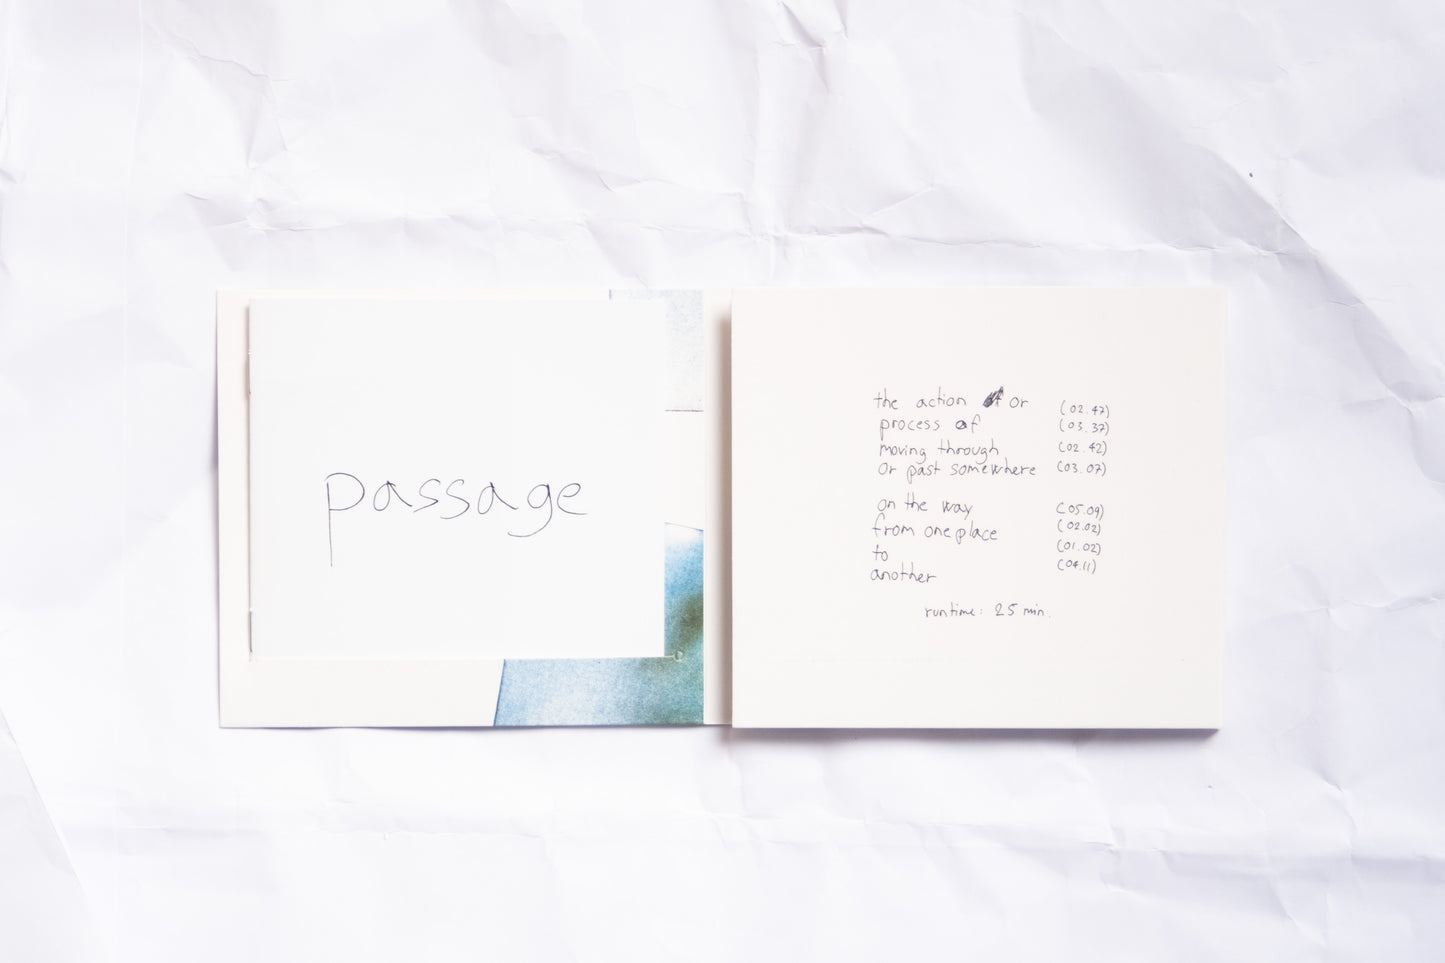 passage
the action or (02.47)
process of (03.37)
moving through (02.42)
or past somewhere (03.07)
on the way (05.09)
from one place (02.02)
to (01.02)
another (04.11)
runtime: 25 min.